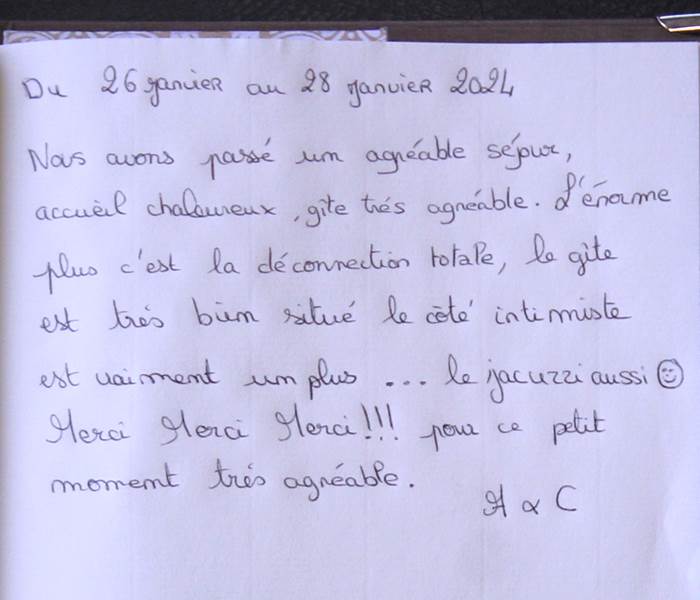 Du 26 janvier au 28 janvier 2024
Nous avons passé um agréable séjour,
accueil chaleureux, gîte trés agréable. L'énorme
plus c'est la déconnection totale, le gîte
est très bien situé le côté intimiste
est vraiment un plus ... le jacuzzi aussi ☺
Merci Merci Merci!!! pour ce petit
moment trés agréable.
A & C